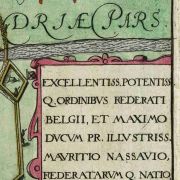 DRIÆ PARS.
EXCELLENTISS. POTENTISS.
Q. ORDINIBUS FEDERATI
BELGII, ET MAXIMO
DUCUM PR. ILLVSTRISS.
MAVRITIO NASSAVIO,
FEDERATARUM Q. NATIO